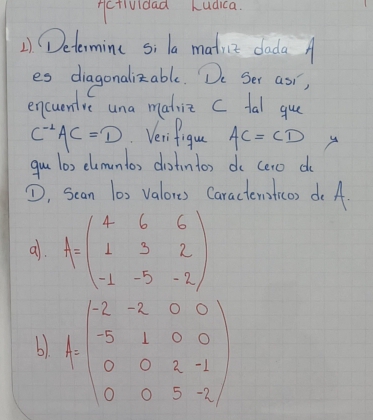 Actividad Ludica.
1) Determine si la matriz dada A
es diagonalizable. De ser así,
encuentre una matriz C tal que
C⁻¹AC = D. Verifique AC = CD y
que los elementos distintos de cero de
D, sean los valores característicos de A.
a). A = ( 4 6 6
1 3 2
-1 -5 -2 )
b). A = ( -2 -2 0 0
-5 1 0 0
0 0 2 -1
0 0 5 -2 )